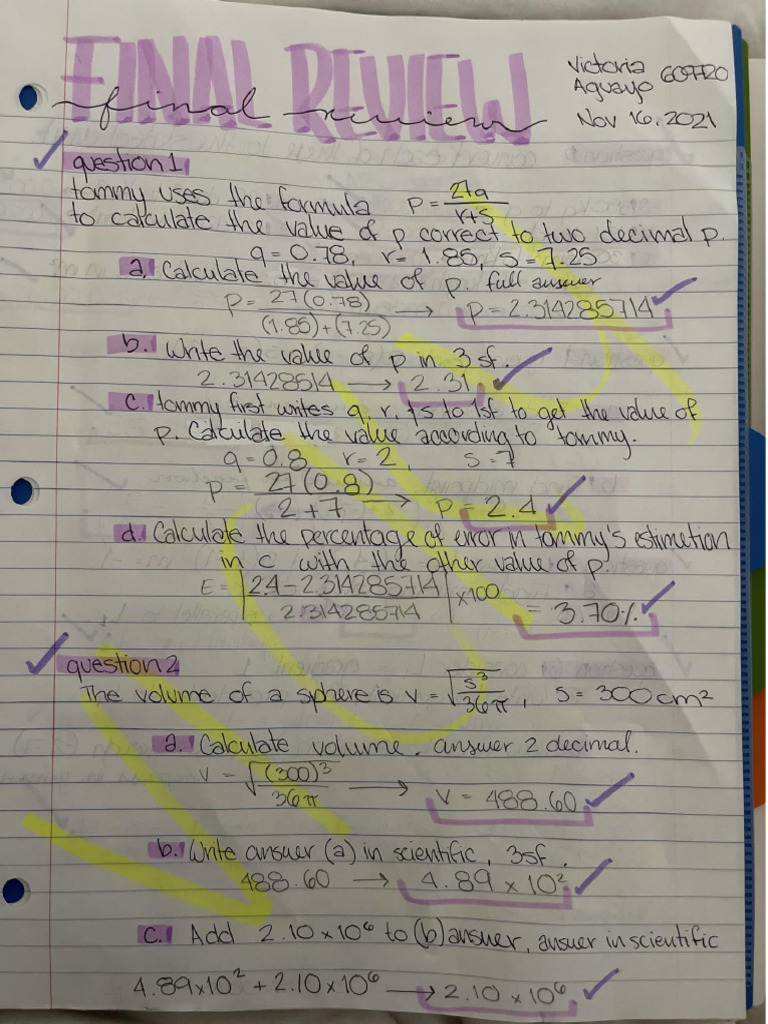 FINAL REVIEW
final review
Victoria
Aguayo 609720
Nov 16, 2021
question 1
tommy uses the formula p = 27q / r+s
to calculate the value of p correct to two decimal p.
q = 0.78, r = 1.85, s = 7.25
a. Calculate the value of p. full answer
p = 27(0.78) / (1.85)+(7.25) → p = 2.314285714
b. Write the value of p in 3 sf.
2.31428514 → 2.31
c. tommy first writes q, r, & s to 1sf to get the value of
p. Calculate the value according to tommy.
q = 0.8 r = 2, s = 7
p = 27(0.8) / 2 + 7 → p = 2.4
d. Calculate the percentage of error in tommy's estimation
in c with the other value of p.
E = |2.4 - 2.314285714 / 2.314285714| x100 = 3.70%
question 2
The volume of a sphere is V = √s³/36π, s = 300cm²
a. Calculate volume. answer 2 decimal.
V = √(300)³/36π → V = 488.60
b. Write answer (a) in scientific, 3sf.
488.60 → 4.89 x 10²
c. Add 2.10 x 10⁶ to (b) answer, answer in scientific
4.89x10² + 2.10 x 10⁶ → 2.10 x 10⁶